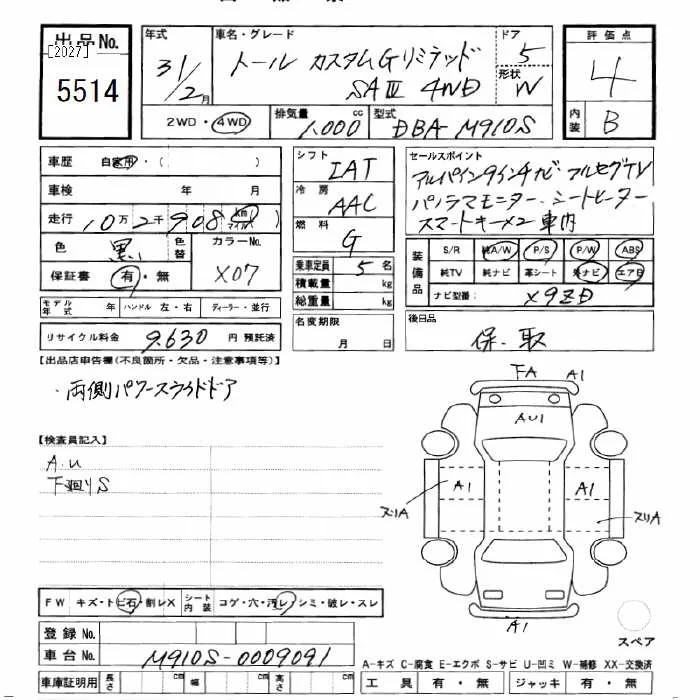 出品No.
[2027]
5514
年式
31/2月
車名・グレード
トール カスタムGリミテッド
SAⅢ 4WD
ドア
5
形状
W
評価点
4
内装
B
2WD・4WD
排気量
1.000
cc
型式
DBA-M910S
車歴
自家用・( )
車検
年 月
走行
10万2千908
km
マイル
色
黒
色替
カラーNo.
X07
保証書
有・無
シフト
IAT
冷房
AAC
燃料
G
乗車定員
5名
積載量
kg
総重量
kg
名変期限
月 日
セールスポイント
アルパイン9インチナビ アルセグTV
パノラマモニター、シートヒーター
スマートキー×2 車内
装備品
S/R 純A/W P/S P/W ABS
純TV 純ナビ 革シート 外ナビ エアB
ナビ型番:
X9ZD
後日品
保・取
モデル年式
年
ハンドル 左・右
ディーラー・並行
リサイクル料金
9.630
円 預託済
【出品店申告欄(不良箇所・欠品・注意事項等)】
・両側パワースライドドア
【検査員記入】
A.U
下廻りS
FA
A1
AU1
A1
A1
スリA
スリA
A1
スペア
FW
キズ・トビ石・割レX
シート内装
コゲ・穴・汚レ・シミ・破レ・スレ
登録No.
車台No.
M910S-0009091
車庫証明用
長さ
cm
幅
cm
高さ
cm
A-キズ C-腐食 E-エクボ S-サビ U-凹ミ W-補修 XX-交換済
工具
有・無
ジャッキ
有・無